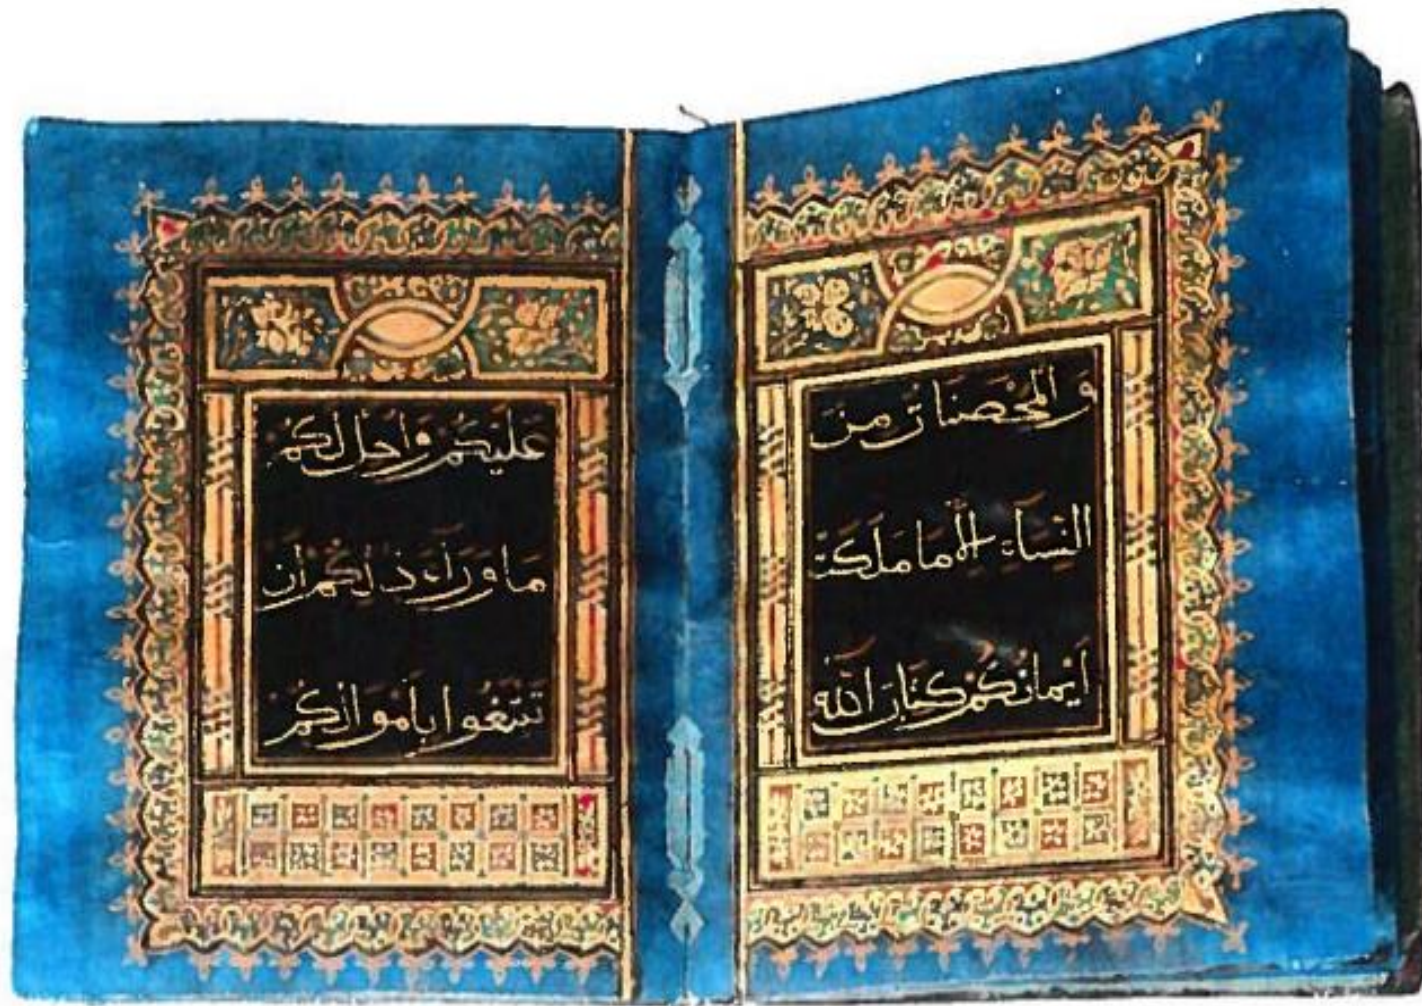 وَالْمُحْصَنَاتُ مِنَ
النِّسَاءِ إِلَّا مَا مَلَكَتْ
أَيْمَانُكُمْ كِتَابَ اللَّهِ
عَلَيْكُمْ وَأُحِلَّ لَكُمْ
مَا وَرَاءَ ذَٰلِكُمْ أَن
تَبْتَغُوا بِأَمْوَالِكُمْ